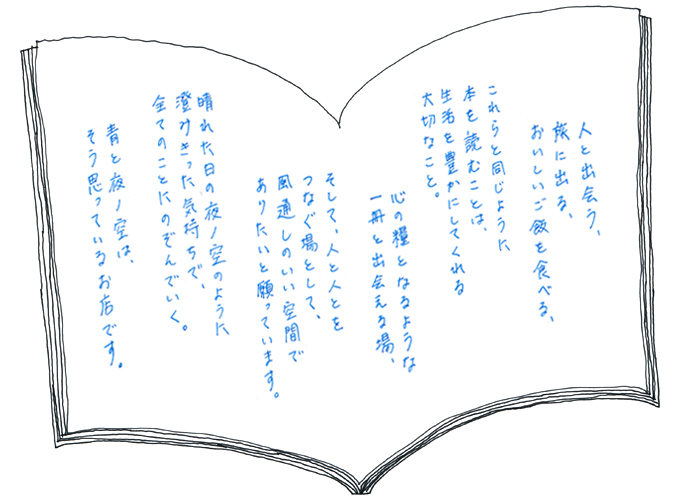 人と出会う、
旅に出る、
おいしいご飯を食べる、
これらと同じように
本を読むことは、
生活を豊かにしてくれる
大切なこと。
心の糧となるような
一冊と出会える場、
そして、人と人とを
つなぐ場として、
風通しのいい空間で
ありたいと願っています。
晴れた日の夜ノ空のように
澄みきった気持ちで、
全てのことにのぞんでいく。
青と夜ノ空は、
そう思っているお店です。